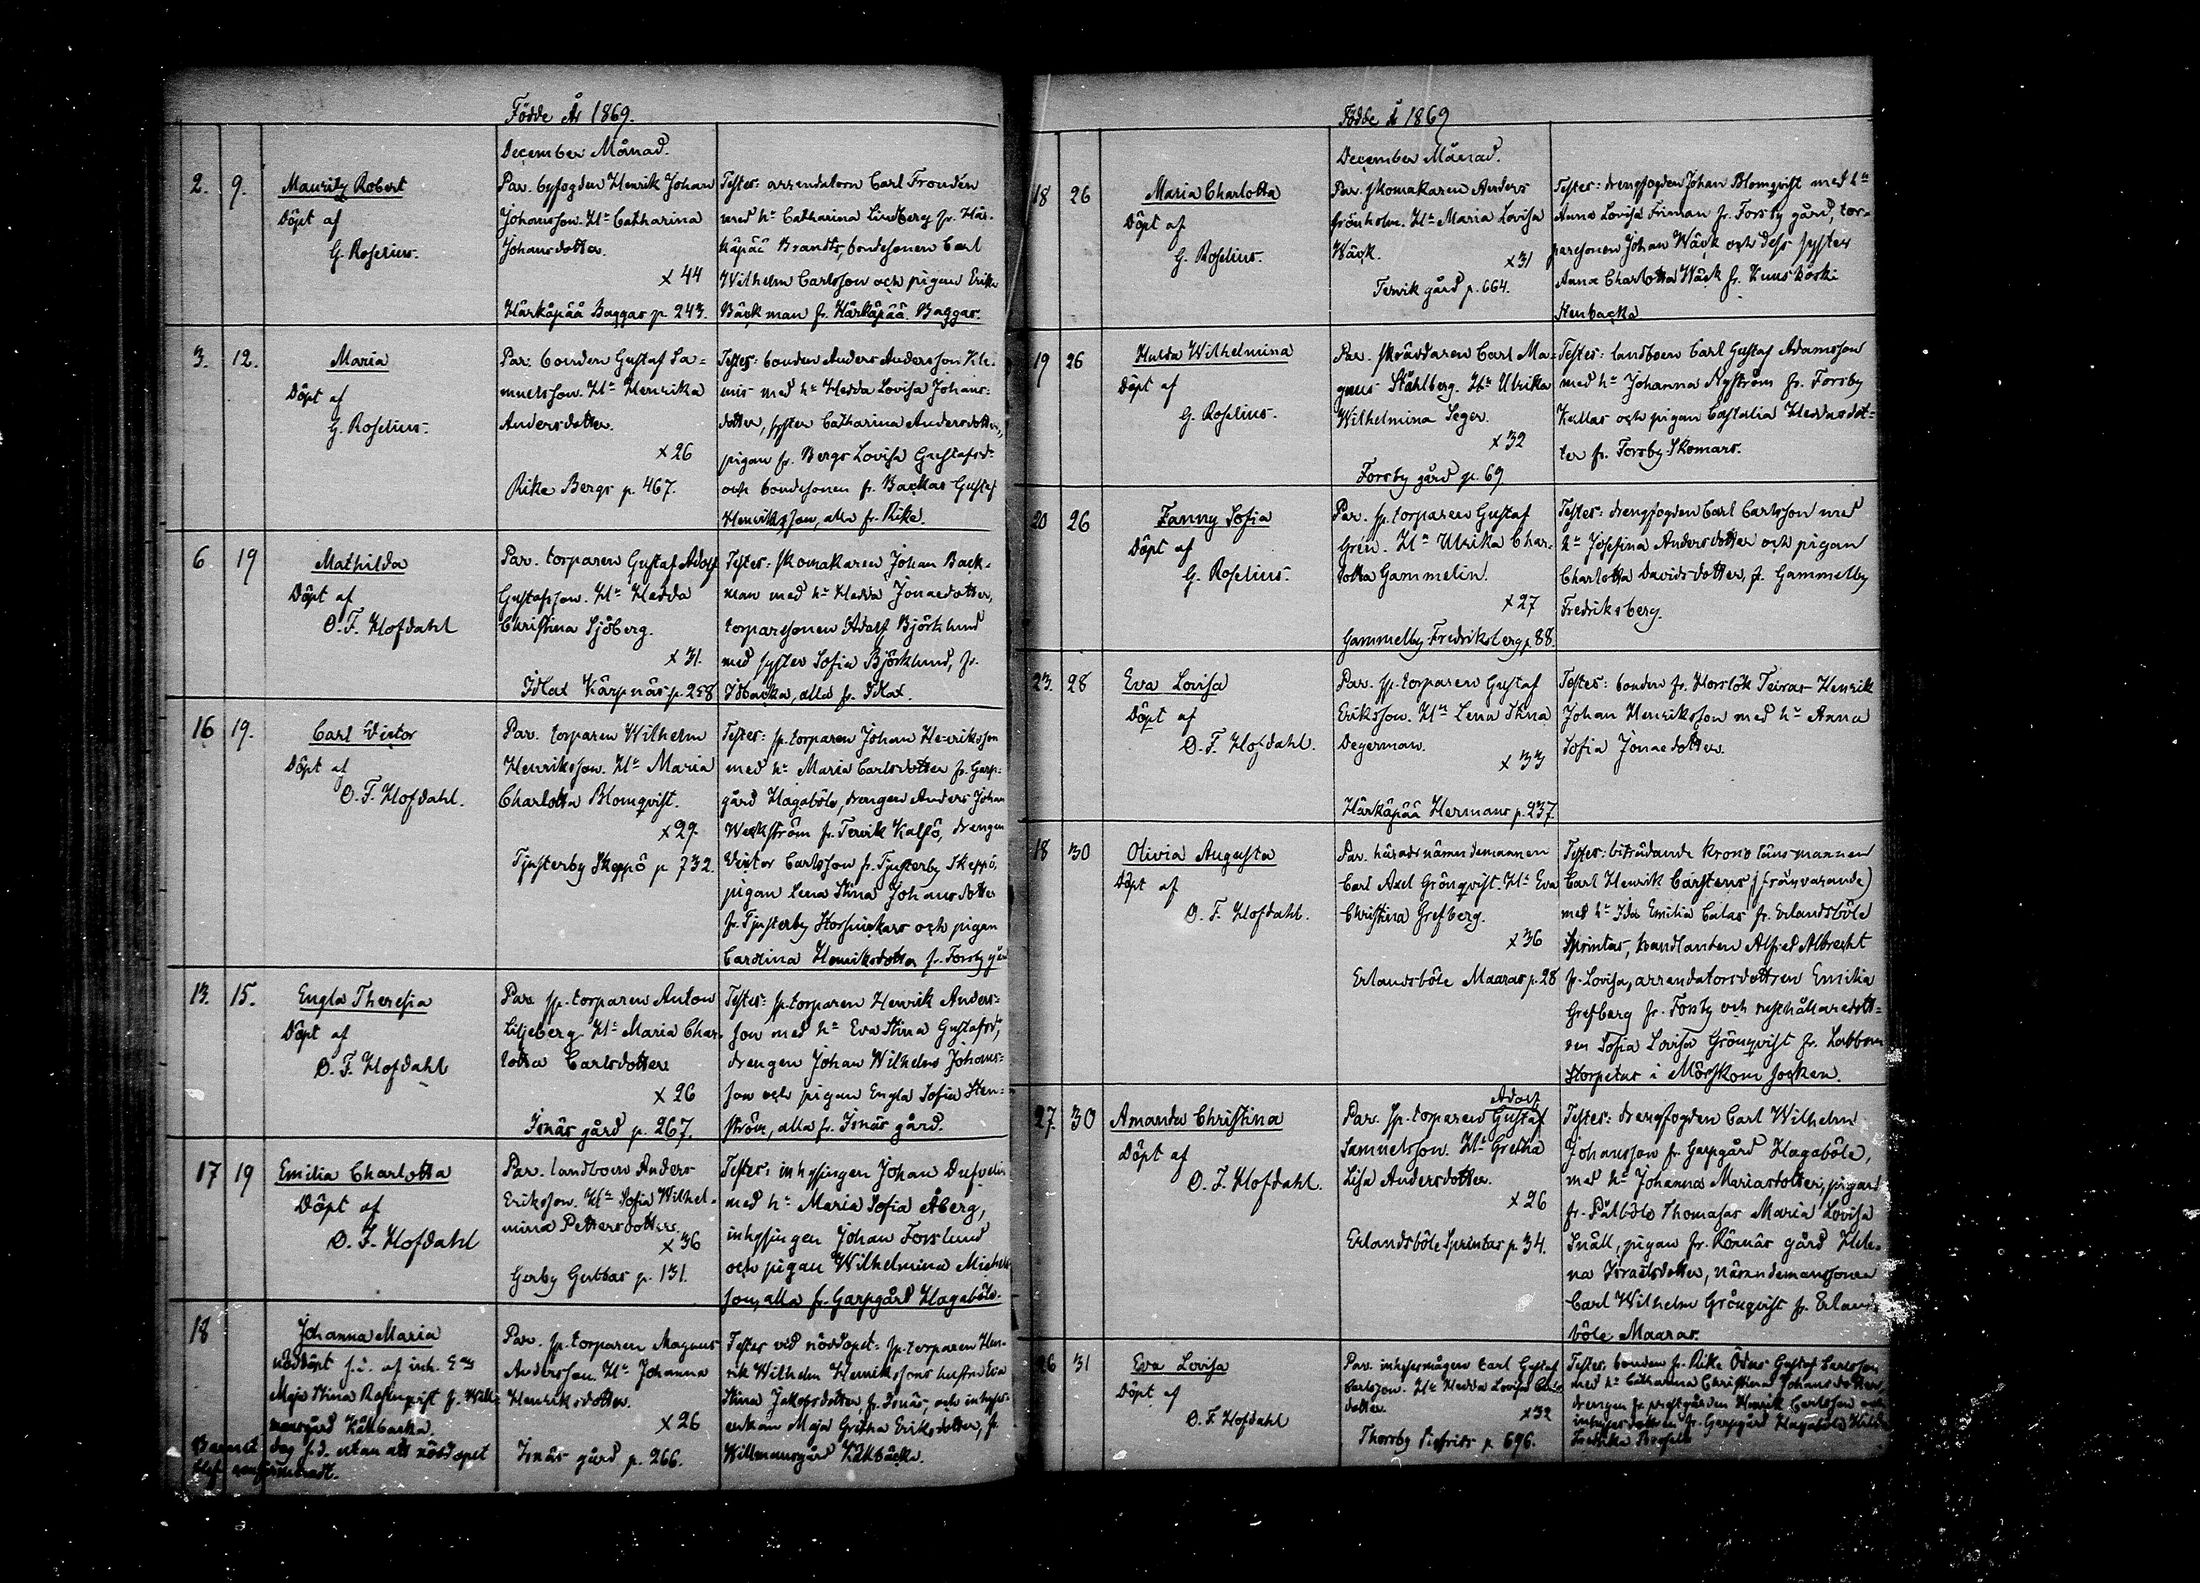 Födde År 1869.
December Månad.
2. 9. Mauritz Robert
Döpt af
G. Roselius.
Par. byfogden Henrik Johan
Johansson. H:u Catharina
Johansdotter.
x 44
Härkäpää Baggas p. 243.
Testes: arrendatorn Carl Frondén
med h:u Catharina Lindberg fr. Här-
käpää Brandts, bondesonen Carl
Wilhelm Carlsson och pigan Erika
Bäckman fr. Härkäpää Baggas.
3. 12. Maria
Döpt af
G. Roselius.
Par. bonden Gustaf Sa-
muelsson. H:u Henrika
Andersdotter.
x 26
Rike Bergs p. 467.
Testes: bonden Anders Andersson Kle-
mis med h:u Hedda Lovisa Johans-
dotter, syster Catharina Andersdotter,
pigan fr. Bergs Lovisa Gustafsd:
och bondesonen fr. Backas Gustaf
Henriksson, alla fr. Rike.
6. 19 Mathilda
Döpt af
O. F. Hofdahl
Par. torparen Gustaf Adolf
Gustafsson. H:u Hedda
Christina Sjöberg.
x 31.
Isnäs Kärpnäs p. 258
Testes: skomakaren Johan Back-
man med h:u Hedda Jonaedotter,
torparesonen Adolf Björklund
med syster Sofia Björklund, fr.
16 19. Carl Victor
Döpt af
O. F. Hofdahl.
Par. torparen Wilhelm
Henriksson. H:u Maria
Charlotta Blomqvist.
x 29.
Tjusterby Skeppö p 732.
Testes: sp. torparen Johan Henriksson
med h:u Maria Carlsdotter fr. Garp-
gård Hagaböle, drengen Anders Johan
Weckström fr. Tervik Kalfö, drengen
Victor Carlsson fr. Tjusterby Skeppö,
pigan Lena Stina Johansdotter
fr. Tjusterby och pigan
Carolina Henriksdotter fr. Forsby gård
13. 15. Engla Theresia
Döpt af
O. F. Hofdahl
Par. sp. torparen Anton
Liljeberg H:u Maria Char-
lotta Carlsdotter
x 26
Isnäs gård p. 267.
Testes: sp. torparen Henrik Anders-
son med h:u Eva Stina Gustafsd:,
drengen Johan Wilhelm Johans-
son och pigan Engla Sofia Sten-
ström, alla fr. Isnäs gård.
17 19 Emilia Charlotta
Döpt af
O. F. Hofdahl
Par. landboen Anders
Eriksson. H:u Sofia Wilhel-
mina Pettersdotter
x 36
Gerby Gubbas p. 131.
Testes: inhysingen Johan Dufvelin
med h:u Maria Sofia Åberg,
inhysingen Johan Forslund
och pigan Wilhelmina Michels-
son, alla fr. Garpgård Hagaböle.
18 Johanna Maria
nöddöpt s. d. af inh. E:an
Maja Stina Rosenqvist fr. Will-
mansgård Käkbacka.
Barnet dog s. d. utan att nöddopet
blef
Par. sp. torparen Magnus
Andersson. H:u Johanna
Henriksdotter.
x 26
Isnäs gård p. 266.
Testes vid nöddopet: sp. torparen Hen-
rik Wilhelm Henrikssons hustru Eva
Stina Jakobsdotter, fr. Isnäs, och inhyses-
enkan Maja Gretha Eriksdotter, fr
Willmansgård Käkbacka.
Födde å 1869
December Månad.
18 26 Maria Charlotta
Döpt af
G. Roselius.
Par. skomakaren Anders
Grönholm. H:u Maria Lovisa
Wäck.
x 31
Tervik gård p. 664.
Testes: drengfogden Johan Blomqvist med h:u
Anna Lovisa Friman fr. Forsby gård, tor-
paresonen Johan Wäck och dess syster
Anna Charlotta Wäck fr. Kuuskoski
Stenbacka
19 26 Hulda Wilhelmina
Döpt af
G. Roselius.
Par. skräddaren Carl Ma-
gnus Ståhlberg. H:u Ulrika
Wilhelmina Seger.
x 32
Forsby gård p. 69
Testes: landboen Carl Gustaf Adamsson
med h:u Johanna Nyström fr. Forsby
Kullas och pigan Castalia Heddasdot-
ter fr. Forsby Skomars.
20 26 Fanny Sofia
Döpt af
G. Roselius.
Par. sp. torparen Gustaf
Grén. H:u Ulrika Char-
lotta Gammelin.
x 27
Gammelby Fredriksberg p. 88.
Testes: drengfogden Carl Carlsson med
h:u Josefina Andersdotter och pigan
Charlotta Davidsdotter, fr. Gammelby
Fredriksberg.
23. 28 Eva Lovisa
Döpt af
O. F. Hofdahl.
Par. sp. torparen Gustaf
Eriksson. H:u Lena Stina
Degerman.
x 33
Härkäpää Hermans p. 237.
Testes: bonden fr. Horslök Teiras Henrik
Johan Henriksson med h:u Anna
Sofia Jonaedotter.
18 30 Olivia Augusta
Döpt af
O. F. Hofdahl.
Par. häradsnämndemannen
Carl Axel Grönqvist. H:u Eva
Christina Grefberg.
x 36
Erlandsböle Maaras p. 28
Testes: biträdande kronolänsmannen
Carl Henrik Carstens (frånvarande)
med h:u Ida Emilia Calas fr. Erlandsböle
Sprintas, handlanden Alfred Albrecht
fr. Lovisa, arrendatorsdottren Emilia
Grefberg fr. Forsby och rusthållaredott-
ren Sofia Lovisa Grönqvist fr. Labbom
Storpetas i Mörskom socken.
27. 30 Amanda Christina
Döpt af
O. F. Hofdahl.
Adolf
Par. sp. torparen Gustaf
Samuelsson. H:u Gretha
Lisa Andersdotter.
x 26
Erlandsböle Sprintas p. 34.
Testes: drengfogden Carl Wilhelm
Johansson fr. Garpgård Hagaböle,
med h:u Johanna Mariasdotter, pigan
fr. Påtböle Thomasas Maria Lovisa
Snäll, pigan fr. Rönnäs gård Hele-
na Israelsdotter, nämndemanssonen
Carl Wilhelm Grönqvist fr. Erlands-
böle Maaras.
26 31 Eva Lovisa
Döpt af
O. F. Hofdahl
Par. inhysesmågen Carl Gustaf
Carlsson. H:u Hedda Lovisa Carls-
dotter.
x 32
Thorsby Sigfrids p 696.
Testes: bonden fr. Rike Ödis Gustaf Carlsson
med h:u Catharina Christina Johansdotter,
drengen fr. prestgården Henrik Carlsson och
inhysesdottren fr. Garpgård Hagaböle Hilda
Fredrika